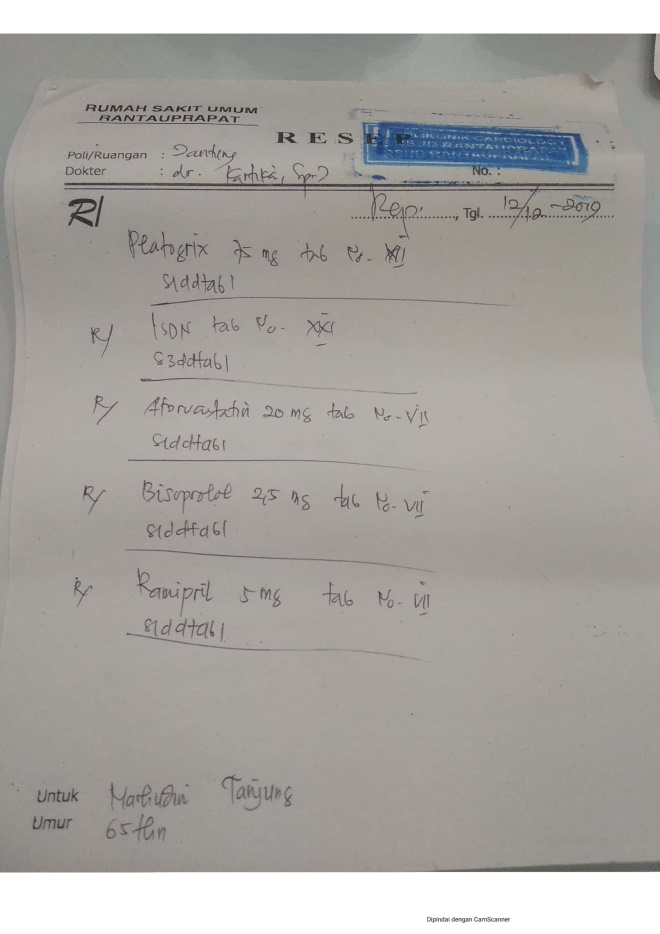 RUMAH SAKIT UMUM
RANTAUPRAPAT
RESEP
POLIKLINIK CARDIOLOGI
RSUD RANTAUPRAPAT
Poli/Ruangan : Jantung
Dokter : dr. Kartika, SpJ
No. :
R/
Rap., Tgl. 12/12-2019
Platogrix 75 mg tab No. VII
S1ddtab1
R/ ISDN tab No. XXI
S3ddtab1
R/ Atorvastatin 20 mg tab No. VII
S1ddtab1
R/ Bisoprolol 2,5 mg tab No. VII
S1ddtab1
R/ Ramipril 5 mg tab No. VII
S1ddtab1
Untuk Tanjung
Umur 65 thn
Dipindai dengan CamScanner